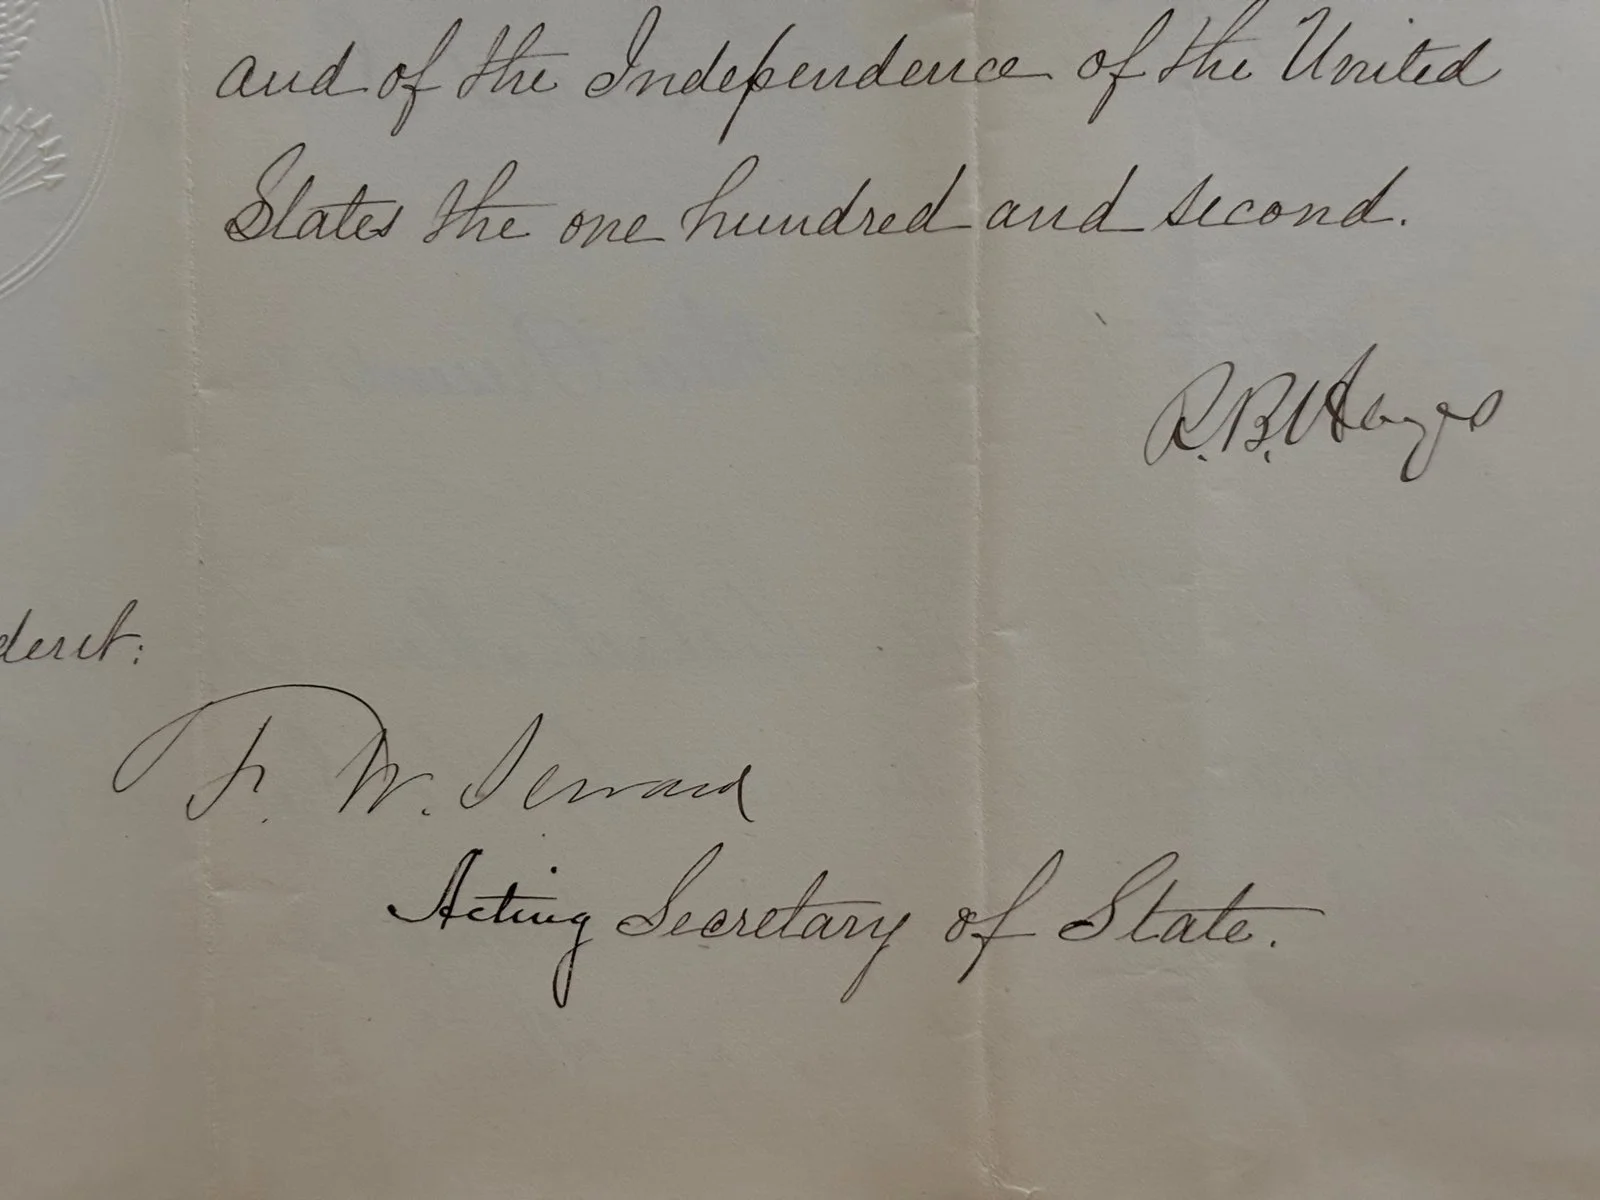 and of the Independence of the United
States the one hundred and second.
R. B. Hayes
dent:
F. W. Seward
Acting Secretary of State.